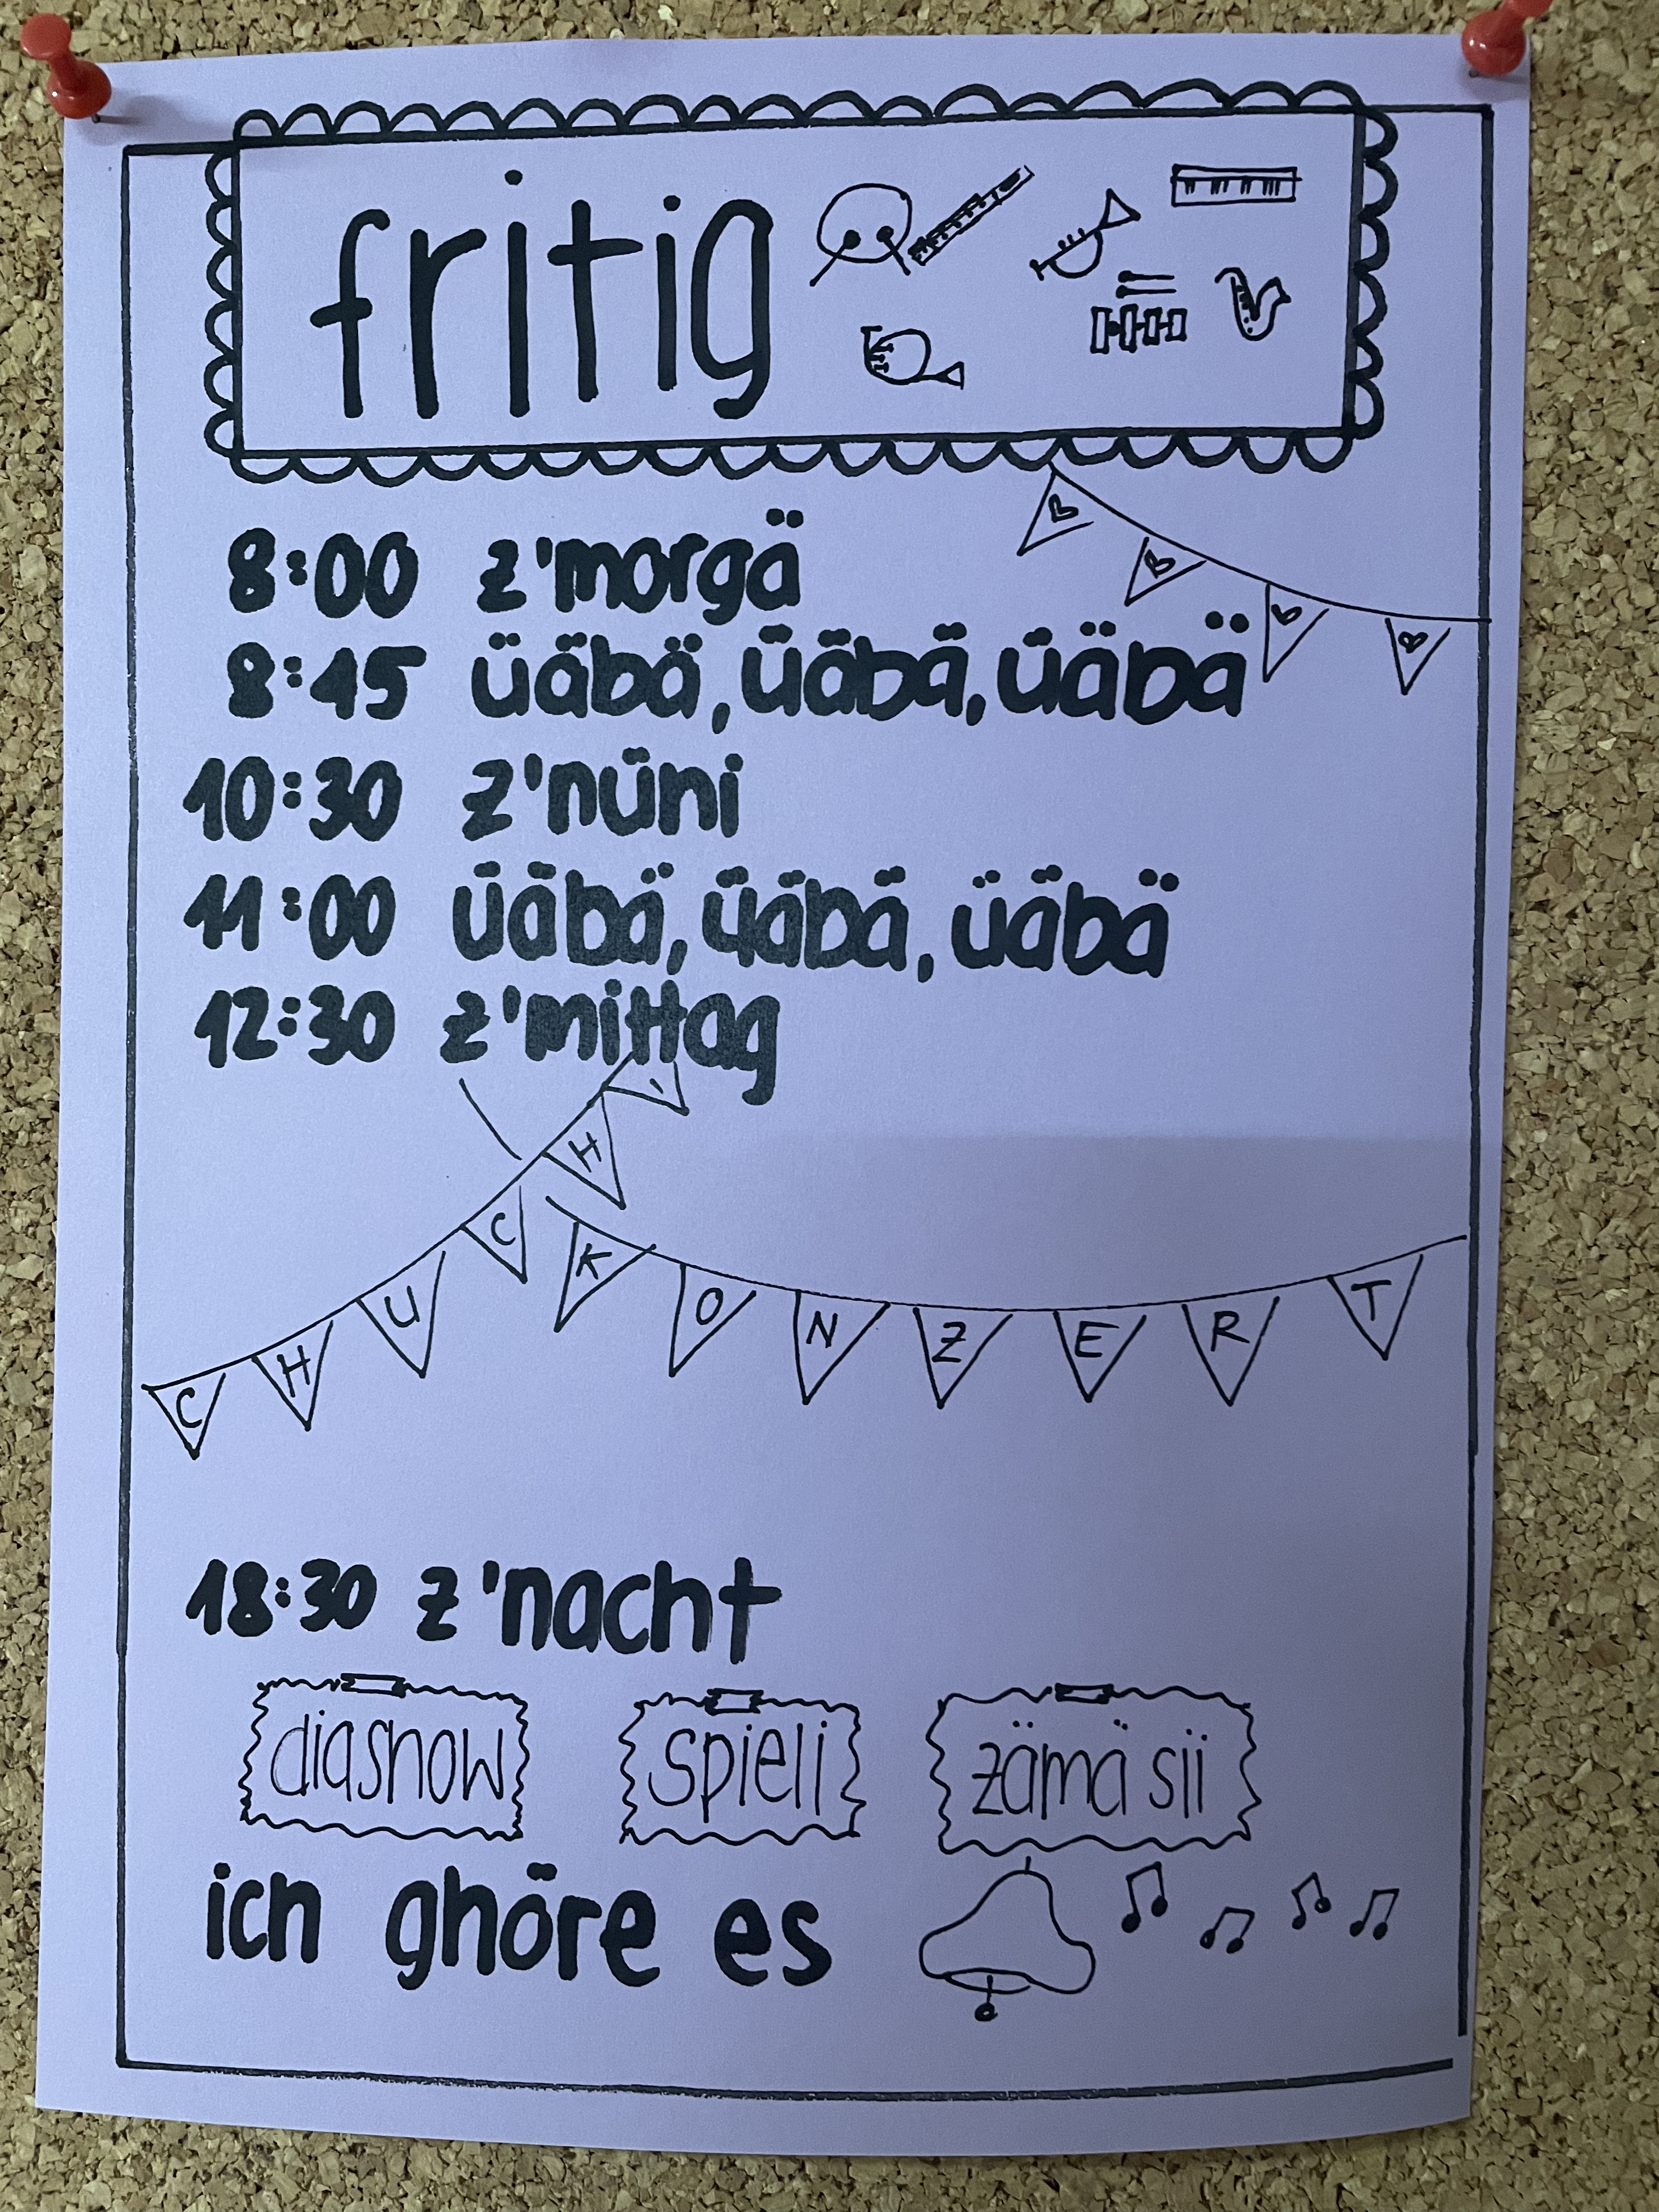 fritig
8:00 z'morgä
8:45 üäbä, üäbä, üäbä
10:30 z'nüni
11:00 üäbä, üäbä, üäbä
12:30 z'mittag
CHUCHI
KONZERT
18:30 z'nacht
diashow spieli zämä sii
ich ghöre es